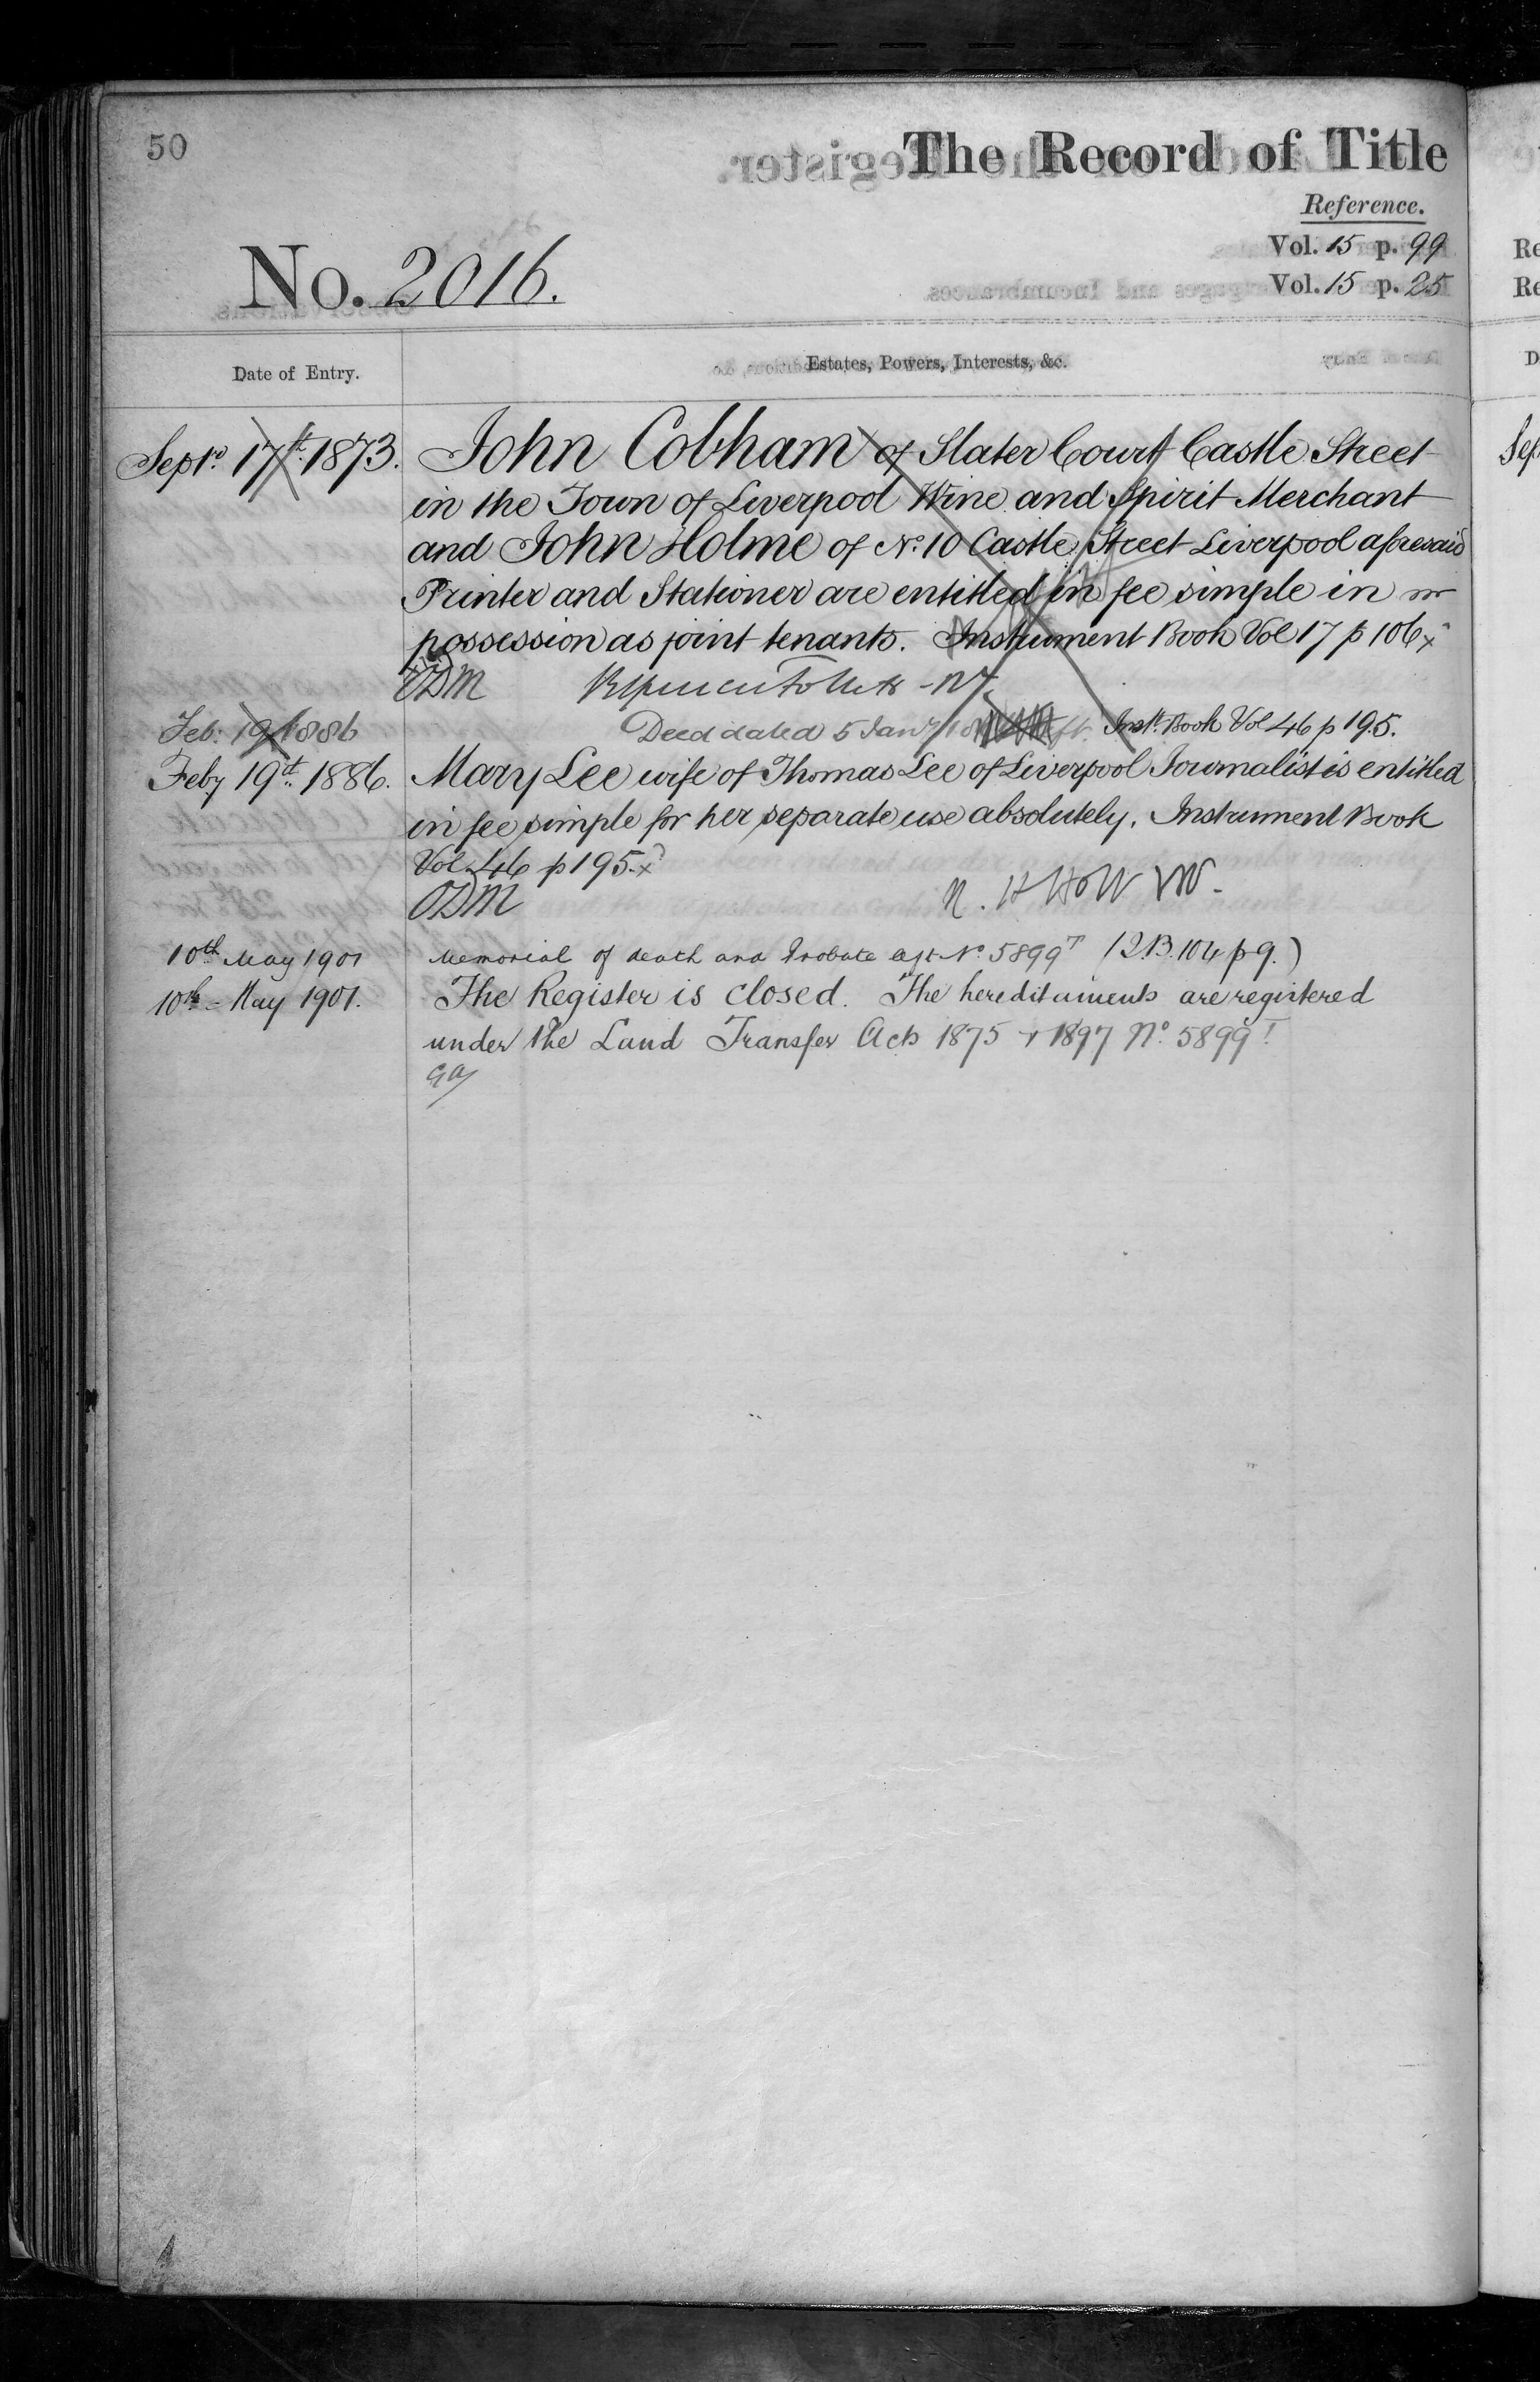 50
The Record of Title
Reference.
Vol. 15 p. 99
Vol. 15 p. 25
No. 2016.
Date of Entry.
Estates, Powers, Interests, &c.
Septr. 17th. 1873. John Cobham of Slater Court Castle Street
in the Town of Liverpool Wine and Spirit Merchant
and John Holme of No. 10 Castle Street Liverpool aforesaid
Printer and Stationer are entitled in fee simple in
possession as joint tenants. Instrument Book Vol 17 p 106 x
Feb: 19 1886 Deed dated 5 Jany Inst. Book Vol 46 p 195.
Feby 19th. 1886. Mary Lee wife of Thomas Lee of Liverpool Journalist is entitled
in fee simple for her separate use absolutely. Instrument Book
Vol. 46 p 195. x
10th May 1901 Memorial of death and Probate No. 5899T 104 p 9.)
10th = May 1901. The Register is closed. The hereditaments are registered
under the Land Transfer Acts 1875 + 1897 No. 5899T.